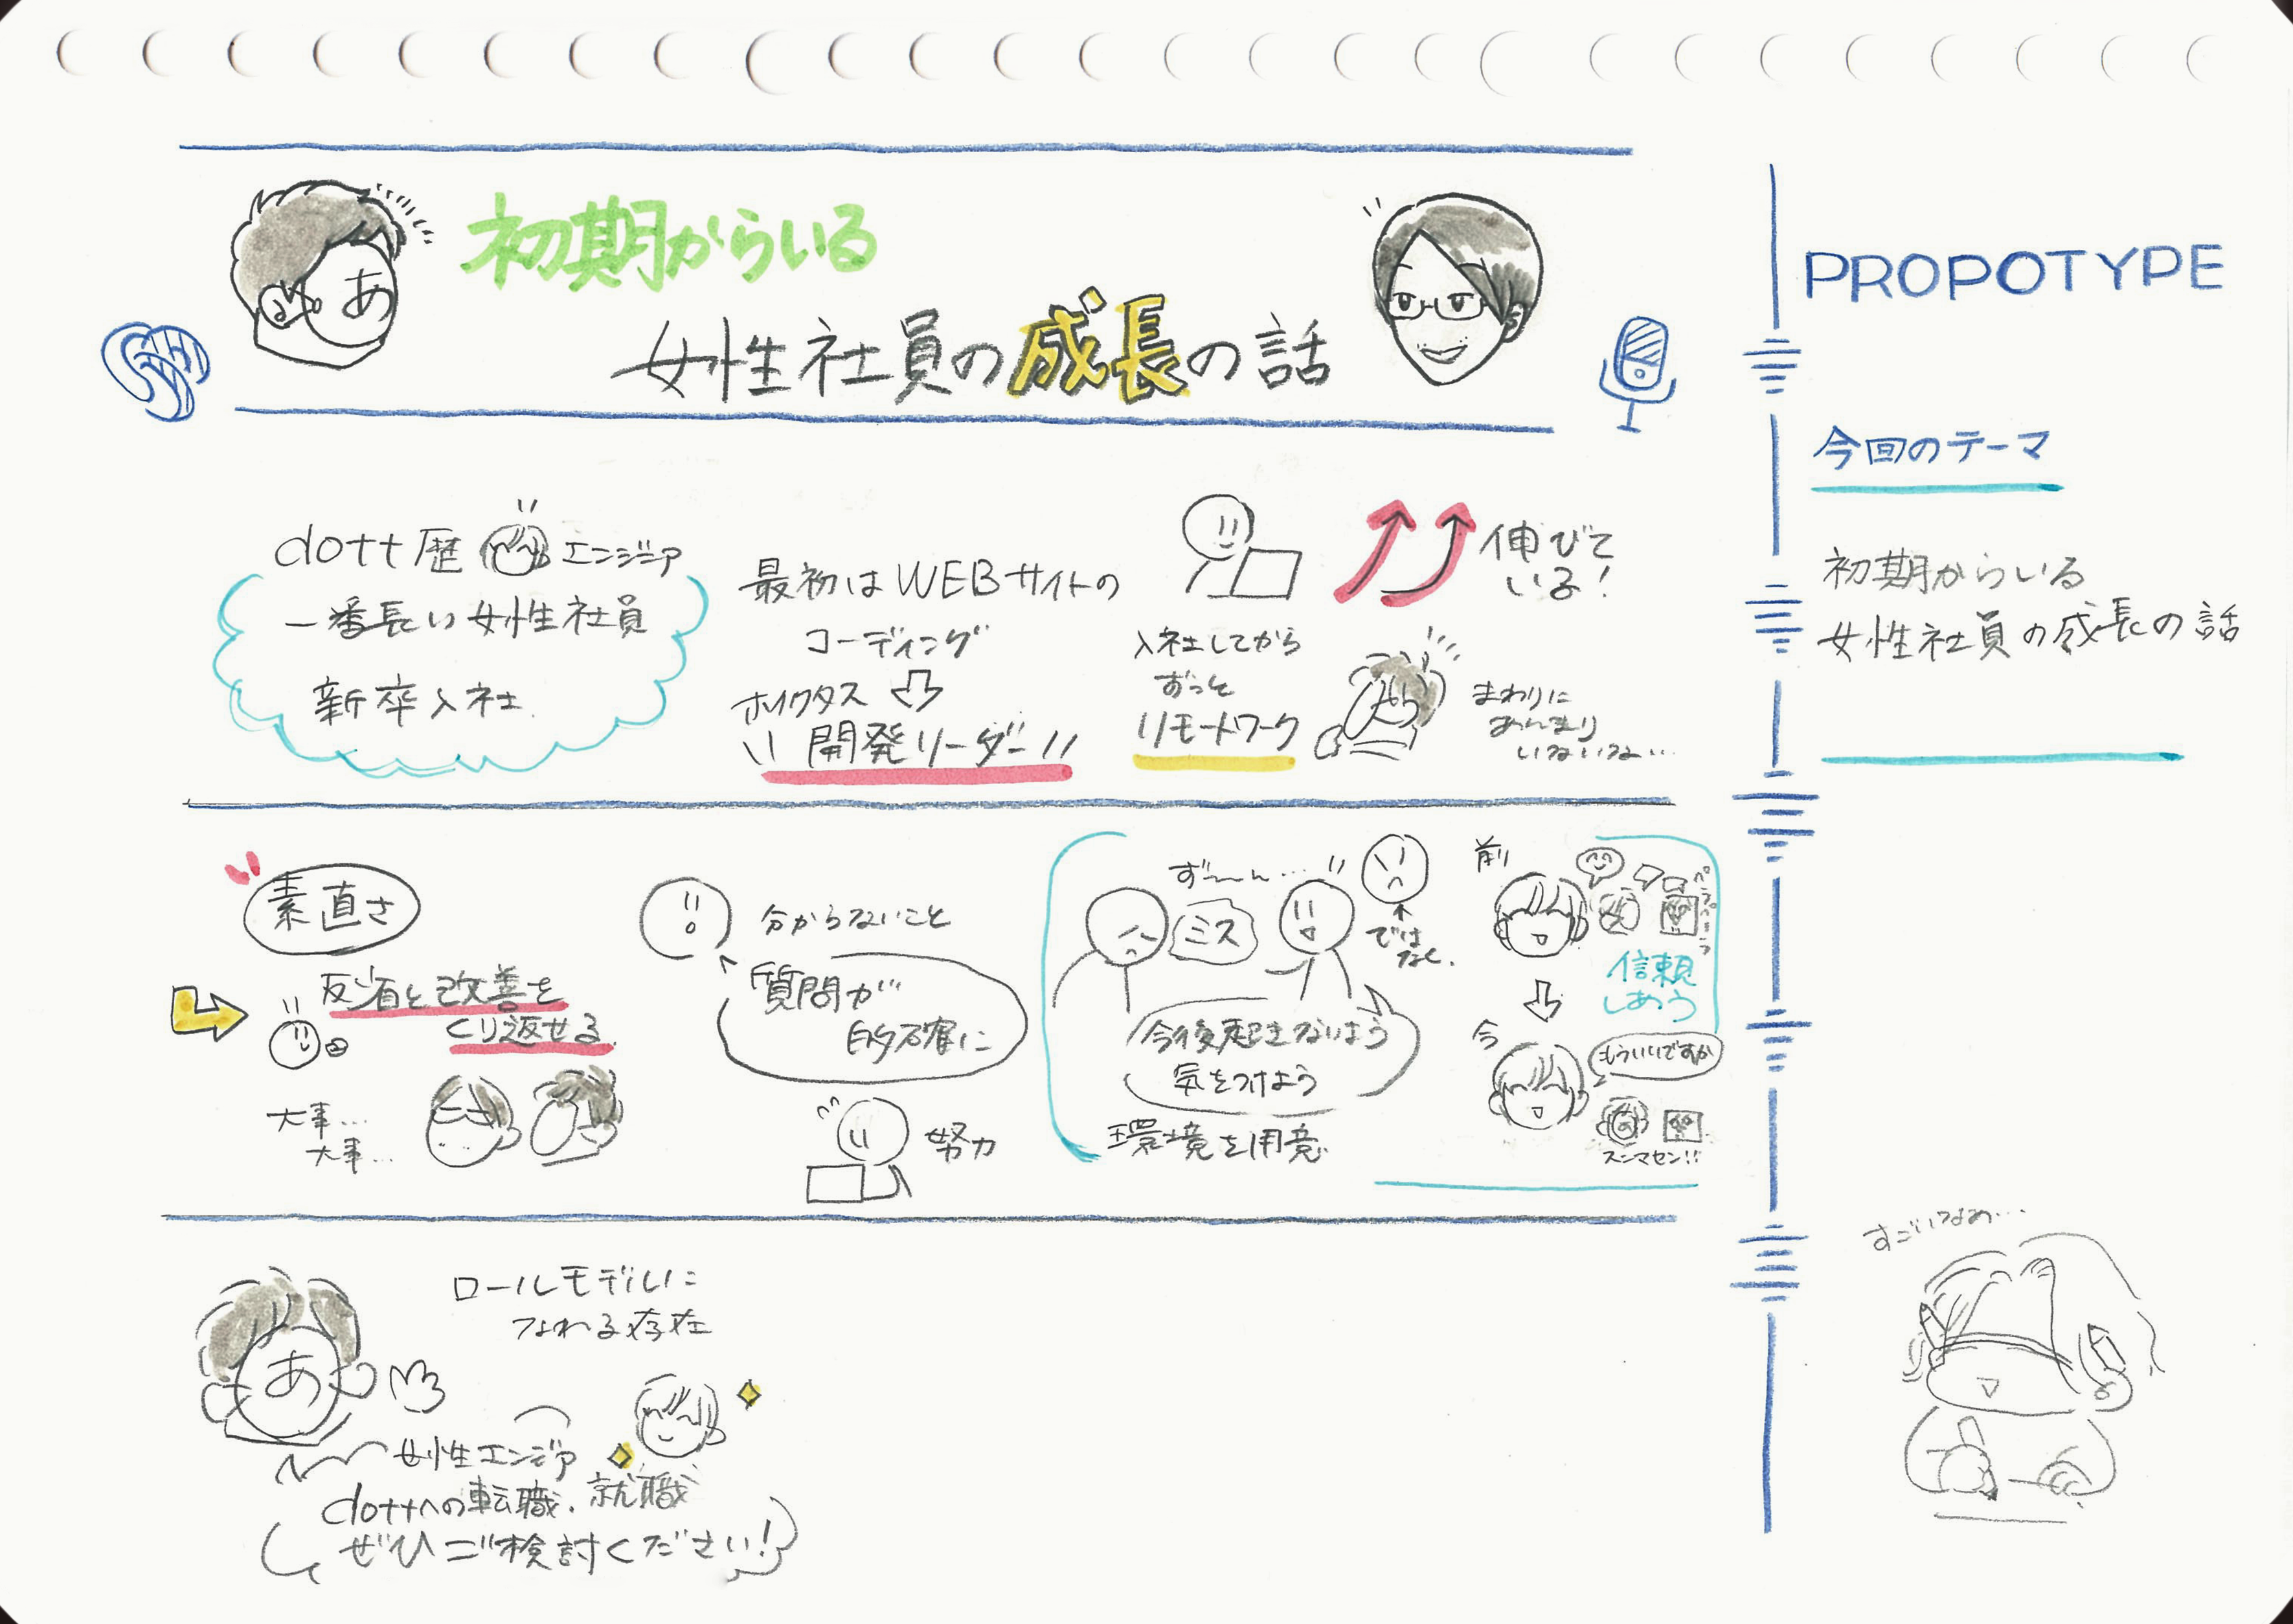 初期からいる
あ
女性社員の成長の話
PROPOTYPE
今回のテーマ
初期からいる
女性社員の成長の話
dott歴 エンジニア
一番長い女性社員
新卒入社
最初はWEBサイトの
コーディング
ホイクタス
開発リーダー
伸びて
いる!
入社してから
ずっと
リモートワーク
まわりに
あんまり
いないな…
素直さ
反省と改善を
くり返せる
大事…
大事…
分からないこと
質問が
的確に
努力
ず〜ん…
ミス
では
なく
今後起きないよう
気をつけよう
環境を用意
前
信頼
しあう
今
もういいですか
スンマセン!!
すごいなぁ…
ロールモデルに
なれる存在
あ
女性エンジニア
dottへの転職、就職
ぜひご検討ください!